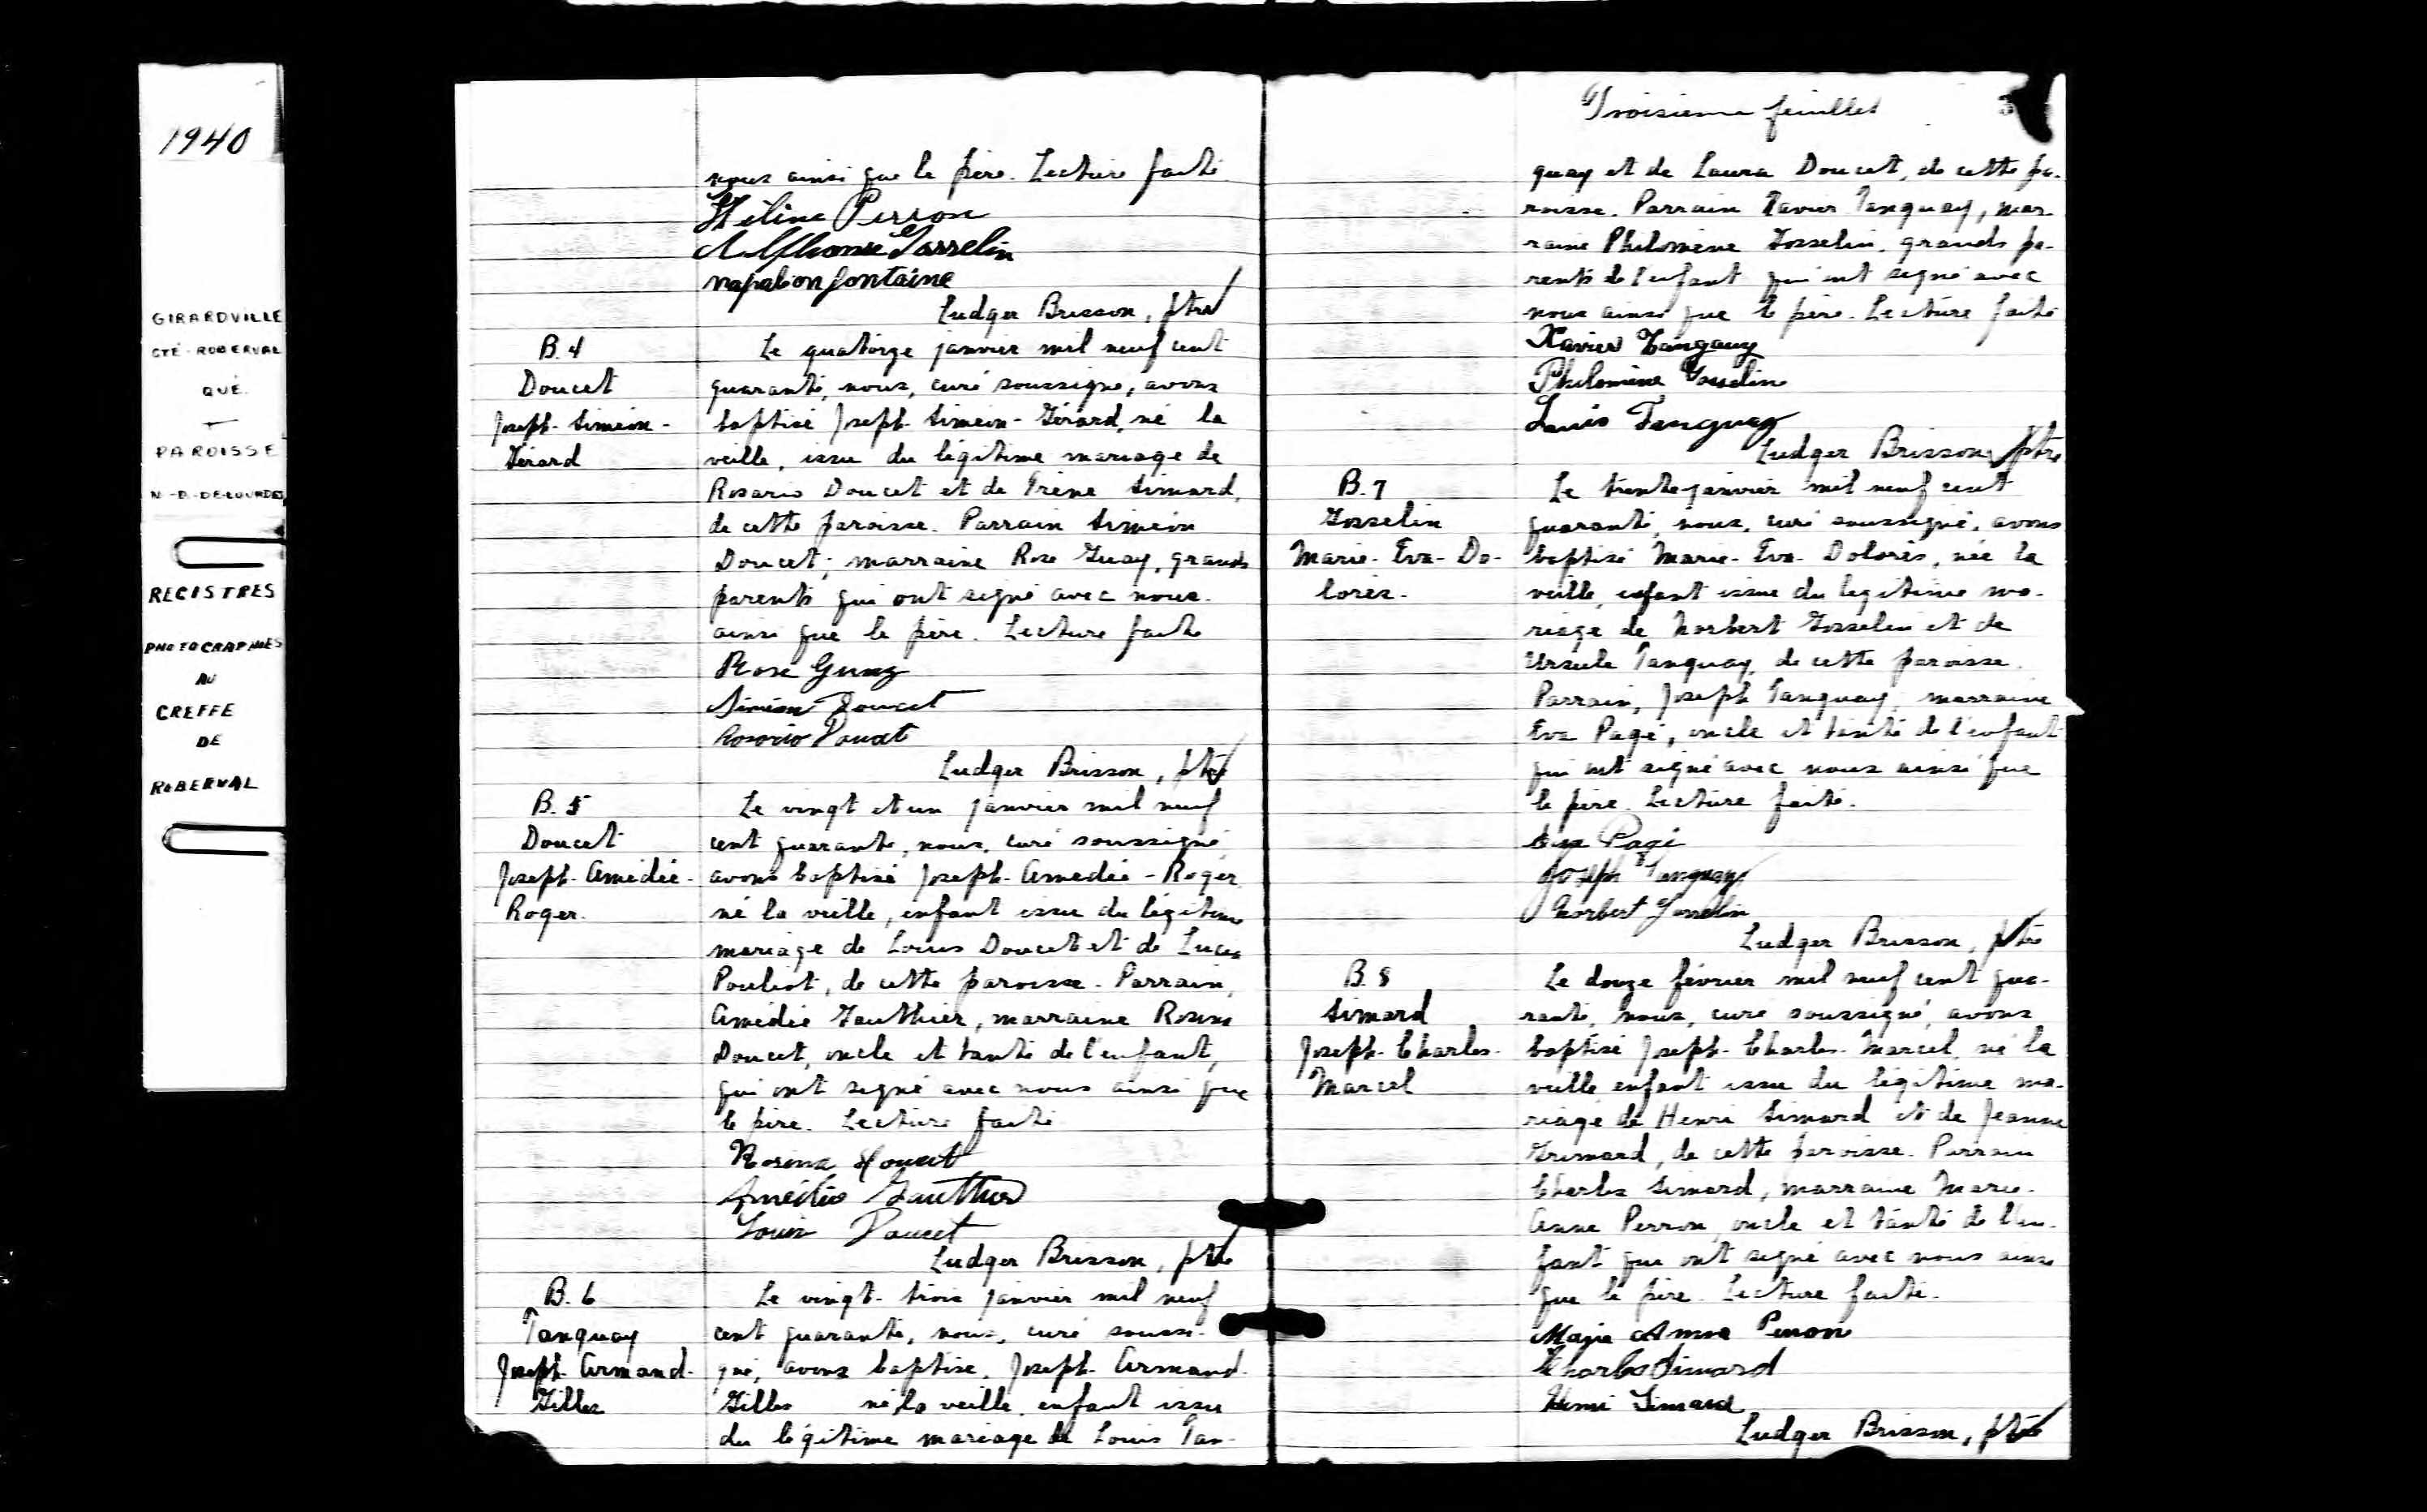 1940
GIRARDVILLE
CTÉ. ROBERVAL
QUÉ.
PAROISSE
N.-D.-DE-LOURDES
REGISTRES
PHOTOGRAPHIÉS
AU
GREFFE
DE
ROBERVAL
nous ainsi que le père. Lecture faite
Hélène Perron
Alphonse Gosselin
napoleon fontaine
Ludger Brisson, ptre
B. 4
Doucet
Joseph-Siméon-
Gérard
Le quatorze janvier mil neuf cent
quarante, nous, curé soussigné, avons
baptisé Joseph-Siméon-Gérard, né la
veille, issu du légitime mariage de
Rosario Doucet et de Irène Simard,
de cette paroisse. Parrain Siméon
Doucet; marraine Rose Guay, grands
parents qui ont signé avec nous.
ainsi que le père. Lecture faite
Rose Guay
Siméon Doucet
Rosario Doucet
Ludger Brisson, ptre
B. 5
Doucet
Joseph-Amédée-
Roger.
Le vingt et un janvier mil neuf
cent quarante, nous, curé soussigné,
avons baptisé Joseph-Amédée-Roger
né la veille, enfant issu du légitime
mariage de Louis Doucet et de
Pouliot, de cette paroisse. Parrain,
Amédée Gauthier, marraine Rosina
Doucet, oncle et tante de l'enfant,
qui ont signé avec nous ainsi que
le père. Lecture faite
Rosina Doucet
Amédée Gauthier
Louis Doucet
Ludger Brisson, ptre
B. 6
Tanguay
Joseph-Armand-
Gilles
Le vingt-trois janvier mil neuf
cent quarante, nous, curé soussi-
gné, avons baptisé, Joseph-Armand-
Gilles né la veille, enfant issu
du légitime mariage de Louis Tan-
Troisième feuillet
3
quay et de Laura Doucet, de cette pa-
roisse. Parrain Xavier Tanguay, mar-
raine Philomène Gosselin, grands pa-
rents de l'enfant qui ont signé avec
nous ainsi que le père. Lecture faite
Xavier Tanguay
Philomène Gosselin
Louis Tanguay
Ludger Brisson, ptre
B. 7
Gosselin
Marie-Eva-Do-
lorès.
Le trente janvier mil neuf cent
quarante, nous, curé soussigné, avons
baptisé Marie-Eva-Dolorès, née la
veille, enfant issue du légitime ma-
riage de Norbert Gosselin et de
Ursule Tanguay, de cette paroisse.
Parrain, Joseph Tanguay, marraine
Eva Pagé, oncle et tante de l'enfant
qui ont signé avec nous ainsi que
le père. Lecture faite.
Eva Pagé
Joseph Tanguay
Norbert Gosselin
Ludger Brisson, ptre
B. 8
Simard
Joseph-Charles-
Marcel
Le douze février mil neuf cent qua-
rante, nous, curé soussigné, avons
baptisé Joseph-Charles-Marcel, né la
veille enfant issu du légitime ma-
riage de Henri Simard et de Jeanne
Grimard, de cette paroisse. Parrain
Charles Simard, marraine Marie-
Anne Perron, oncle et tante de l'en-
fant qui ont signé avec nous ainsi
que le père. Lecture faite.
Marie Anna Perron
Charles Simard
Henri Simard
Ludger Brisson, ptre